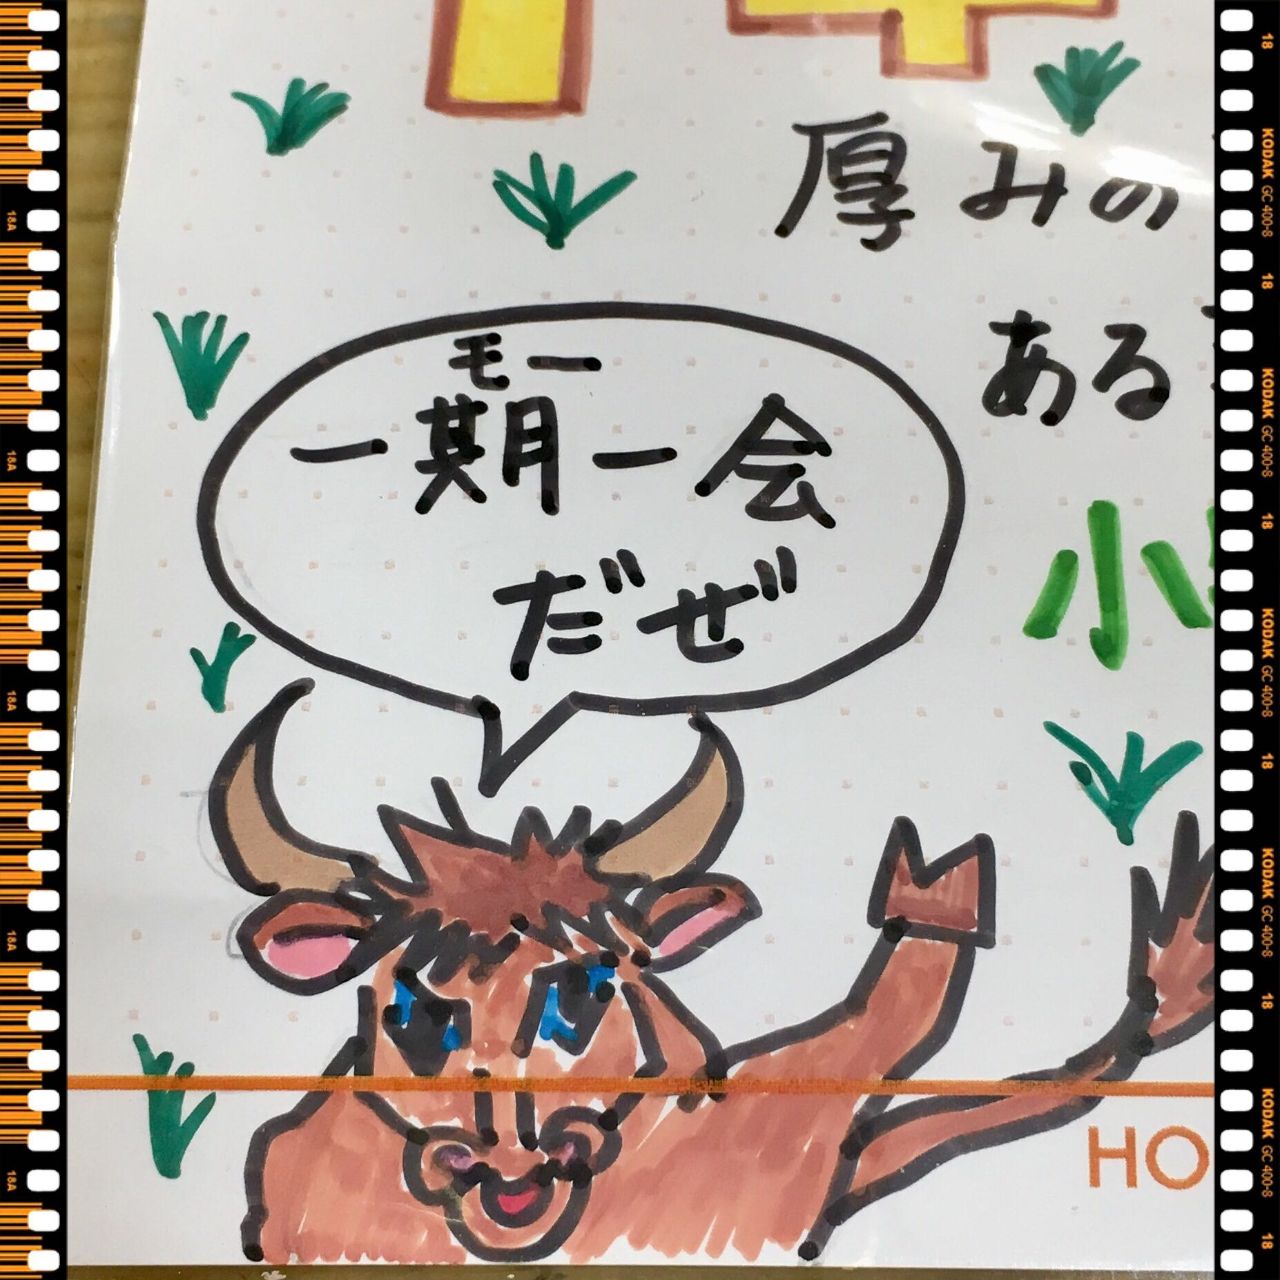 厚みの
ある
モー
一期一会
だぜ
小
HO
18A
18A
18A
18A
18A
18
KODAK GC 400-8
18
KODAK GC 400-8
18
KODAK GC 400-8
18
KODAK GC 400-8
18
KODAK GC 400-8
18